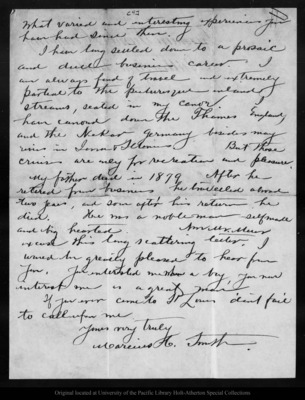 What varied and interesting experiences you
have had since then. I
I have long settled down to a prosaic
and dull business career. I
am always fond of travel and extremely
partial to the picturesque inland
streams, seated in my canoe. I
have canoed down the Thames England
and the Neckar Germany besides many
But these
cruises are only for recreation and pleasure.
My father died in 1879 After he
retired from business he traveled abroad
two years, and soon after his return he
died. He was a noble man self made
and big hearted.
excuse this long scattering letter. I
would be greatly pleased to hear from
you. You interested me when a boy. You now
interest me as a great man.
If you ever come to St Louis don't fail
to call upon me
Yours very truly
Marcius H. Smith
Original located at University of the Pacific Library Holt-Atherton Special Collections